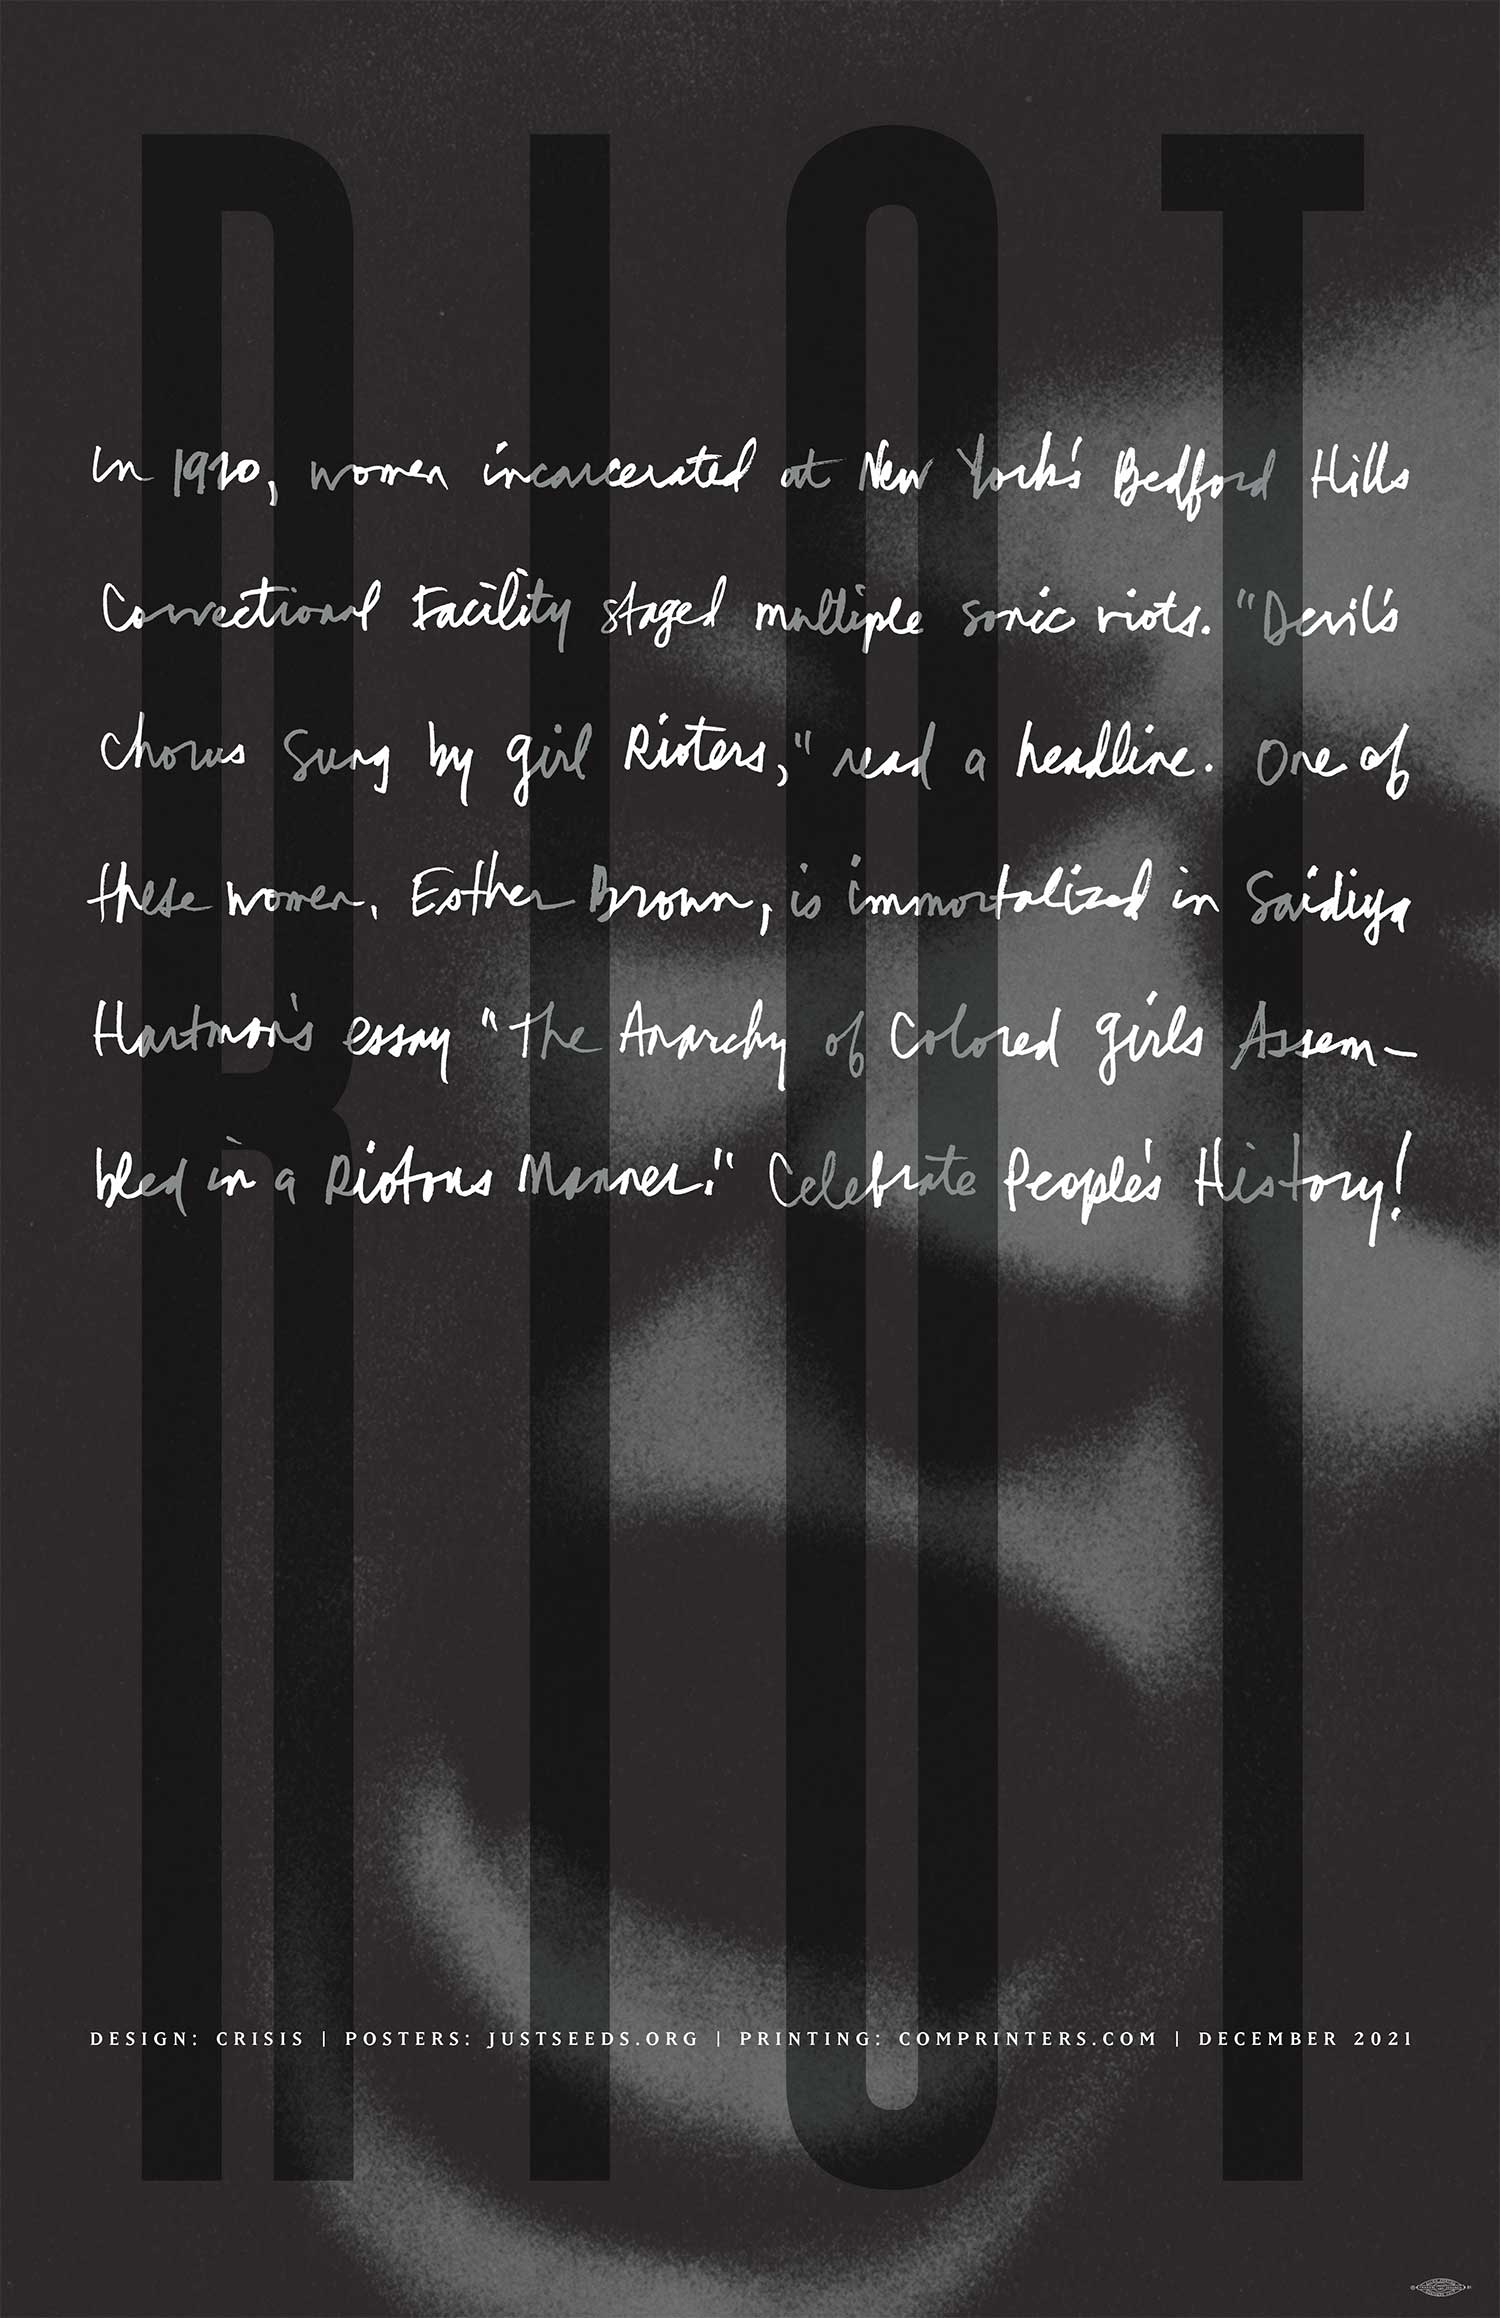 RIOT
In 1920, women incarcerated at New York's Bedford Hills
Correctional Facility staged multiple sonic riots. "Devil's
Chorus Sung by Girl Rioters," read a headline. One of
these women, Esther Brown, is immortalized in Saidiya
Hartman's essay "The Anarchy of Colored Girls Assem-
bled in a Riotous Manner." Celebrate People's History!
DESIGN: CRISIS | POSTERS: JUSTSEEDS.ORG | PRINTING: COMPRINTERS.COM | DECEMBER 2021